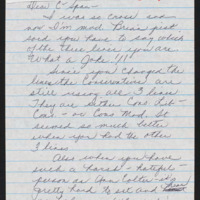 Dear C-Span -
I was so cross and
now I'm mad. Brian just
said you have to say which
of the three lines you are
What a Joke!!!
Since you changed the
lines the Conservatives are
still using all 3 lines
They are either Cons. Lib -
Cons - or Cons Mod. It
seemed so much better
when you had the other
3 lines
Also when you have
such a harsh - hateful -
person as Ann Coulter
pretty hard to sit and